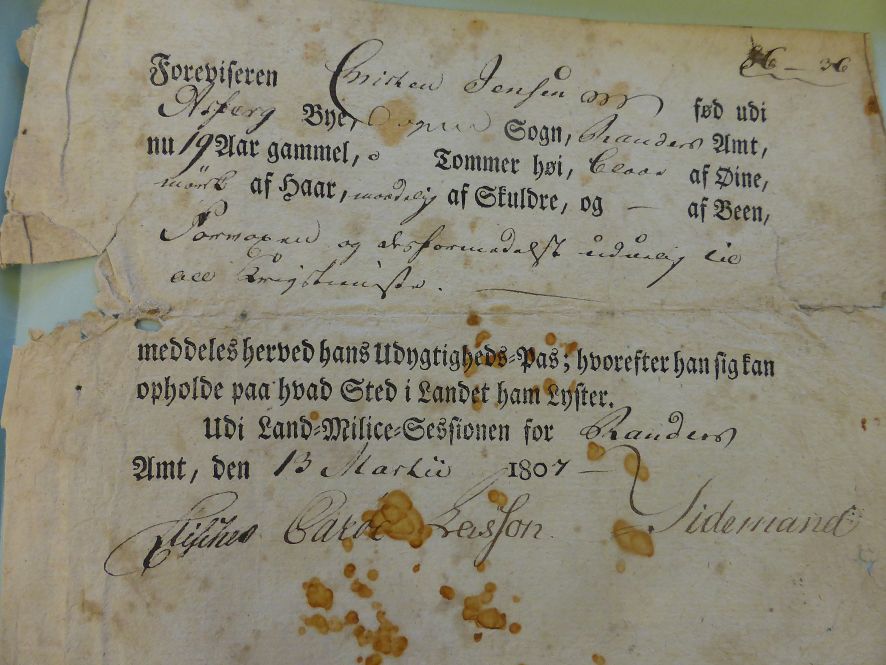 36 - 36
Foreviseren Christen Jensen fød udi
Asferg Bye, Sogn, Randers Amt,
nu 19 Aar gammel, Tommer høi, blaae af Øine,
mørk af Haar, maadelig af Skuldre, og — af Been,
og desformedelst uduelig til
all Krigstieniste. —
meddeles herved hans Udygtigheds-Pas; hvorefter han sig kan
opholde paa hvad Sted i Landet ham Lyster.
Udi Land-Milice-Sessionen for Randers
Amt, den 13 Martii 1807 —
Carøe Lasson Lidemand